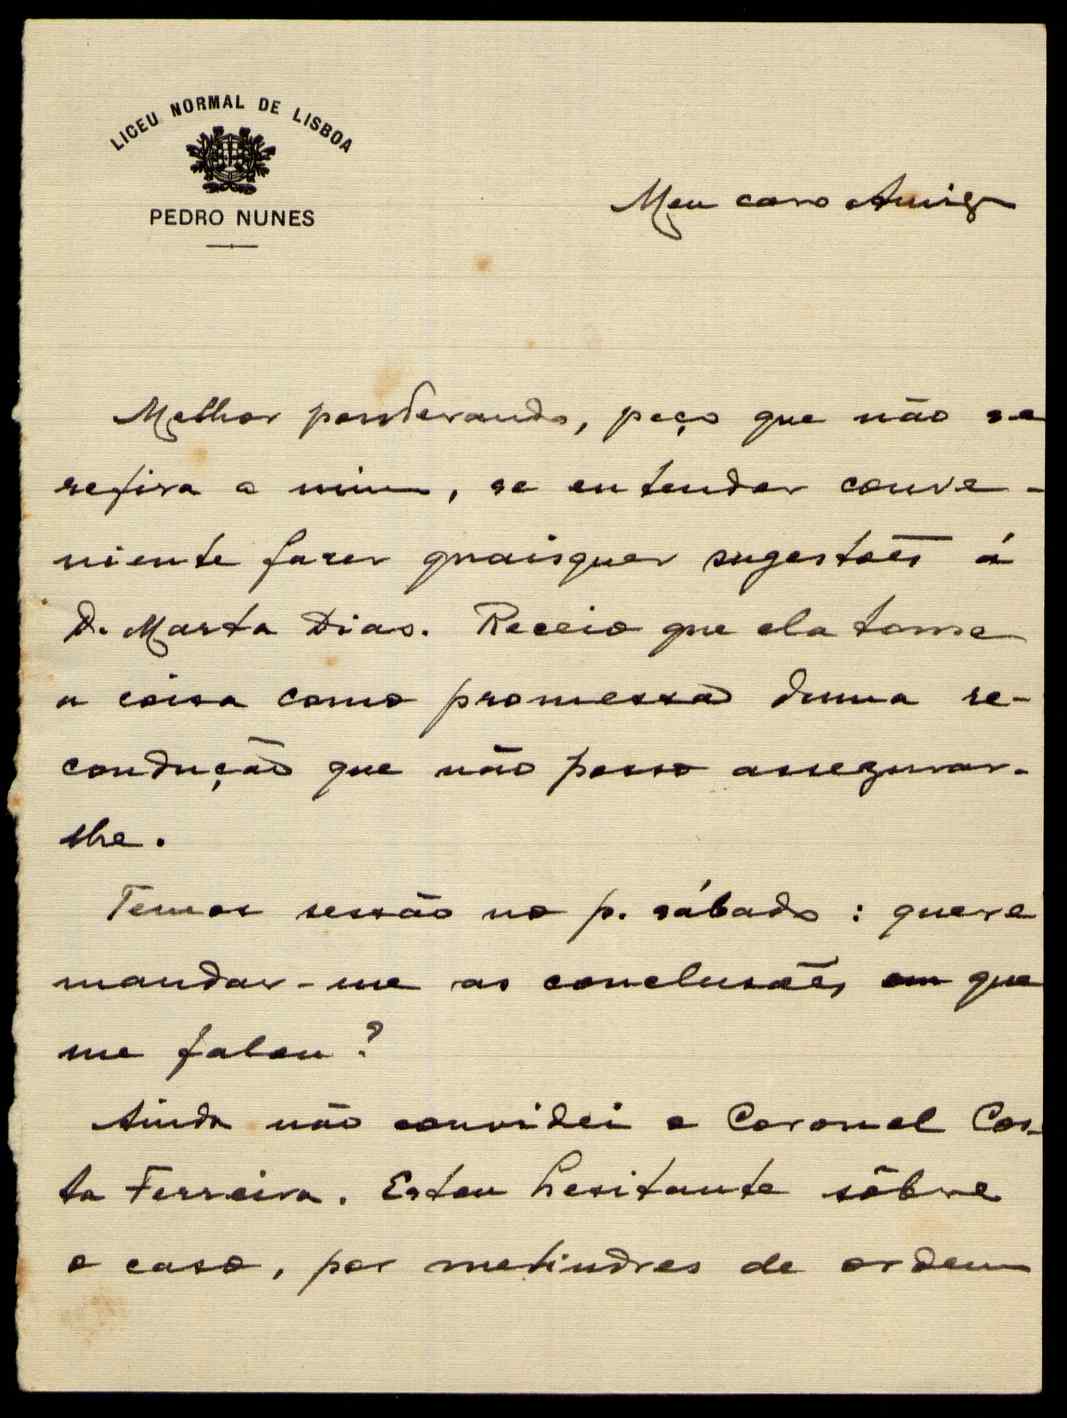 LICEU NORMAL DE LISBOA
PEDRO NUNES
Meu caro Amigo
Melhor ponderando, peço que não se
refira a mim, se entender conve-
niente fazer quaisquer sugestões á
D. Marta Dias. Receio que ela tome
a coisa como promessa duma re-
condução que não posso assegurar-
lhe.
Temos sessão no p. sábado : quere
mandar-me as conclusões em que
me falou?
Ainda não convidei o Coronel Cos-
ta Ferreira. Estou hesitante sôbre
o caso, por melindres de ordem